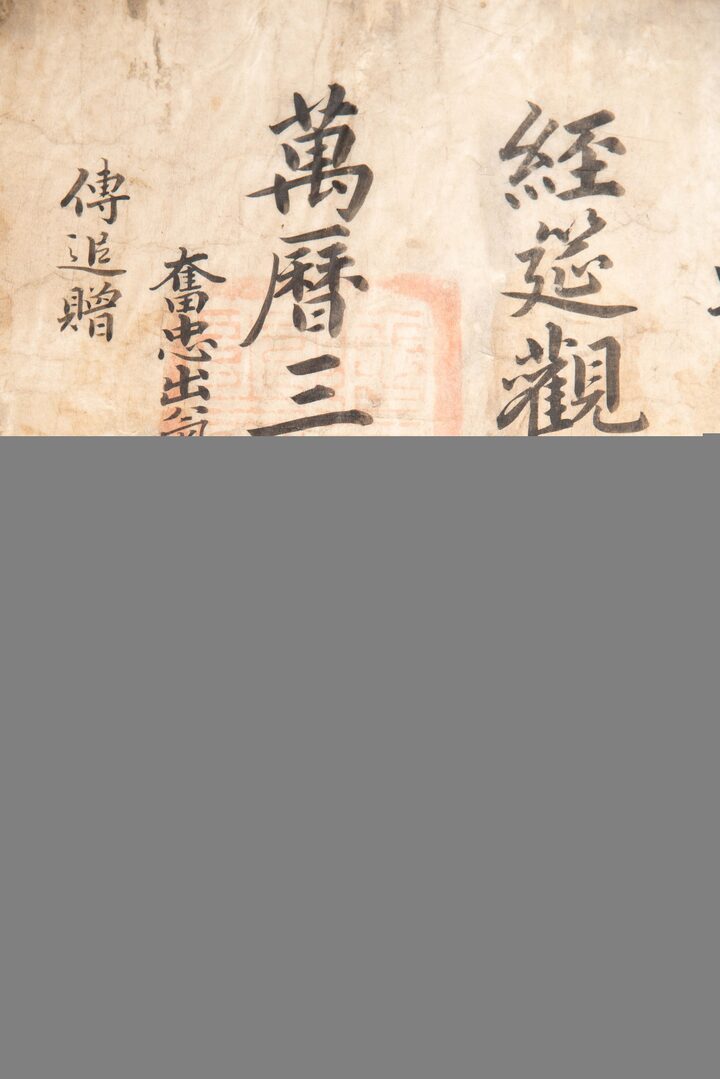 經筵觀
萬曆三
奮忠出氣
傳追贈